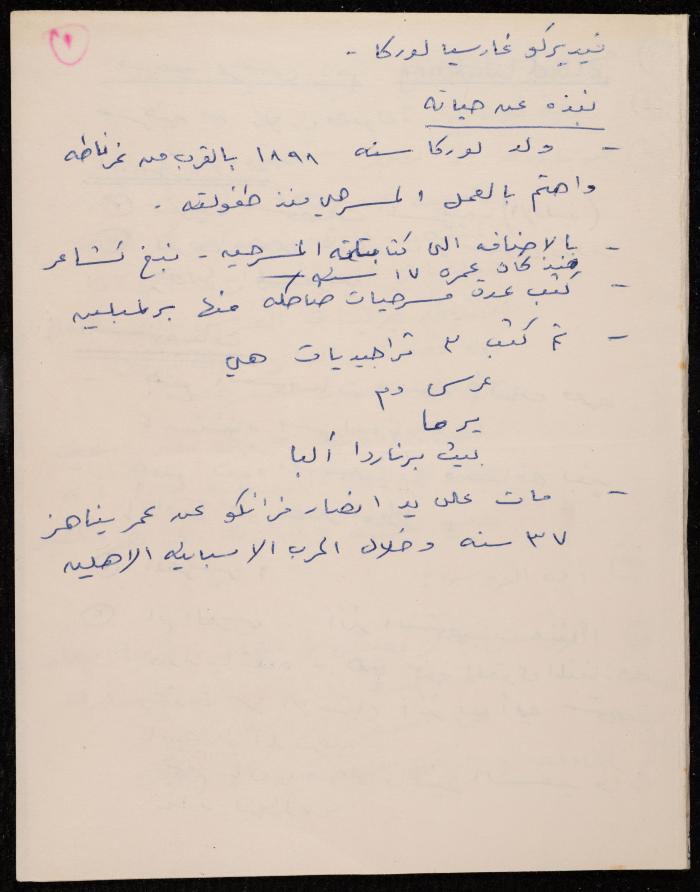 ١
فيديركو غارسيا لوركا -
نبذه عن حياته
- ولد لوركا سنه ١٨٩٨ بالقرب من غرناطه
واهتم بالعمل المسرحي منذ طفولته .
- بالاضافه الى كتابته المسرحيه - نبغ كشاعر
منذ كان عمره ١٧ سنه
- كتب عدة مسرحيات ضاحكه منها برلمبلين
- ثم كتب ٣ تراجيديات هي
عرس دم
يرما
بيت برناردا ألبا
- مات على يد انصار فرانكو عن عمر يناهز
٣٧ سنه وخلال الحرب الاسبانيه الاهليه